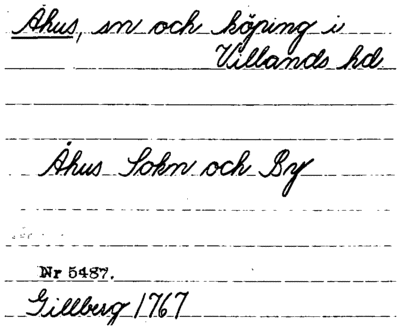 Åhus, sn och köping i
Villands hd
Åhus Sokn och By
Nr 5487.
Gillberg 1767